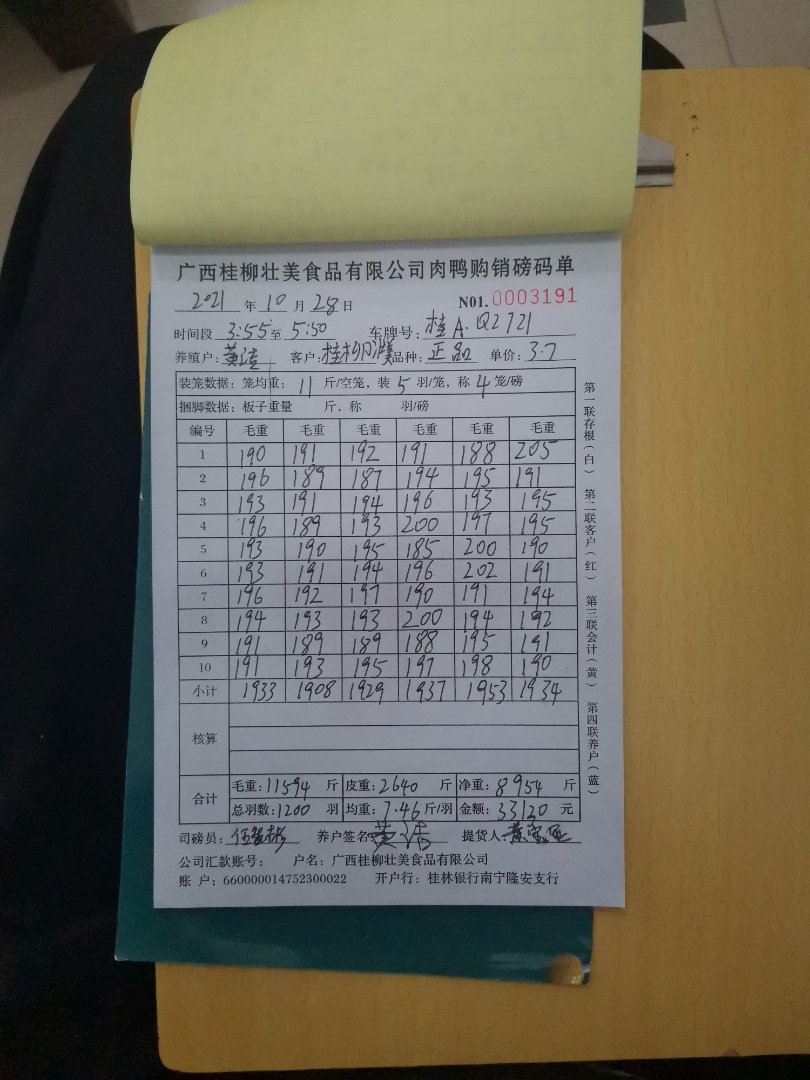 广西桂柳壮美食品有限公司肉鸭购销磅码单
2021 年 10 月 28 日 N01. 0003191
时间段 3:55 至 5:50 车牌号: 桂A·Q2721
养殖户: 黄洁 客户: 桂柳 品种: 正品 单价: 3.7
装笼数据: 笼均重: 11 斤/空笼, 装 5 羽/笼, 称 4 笼/磅
捆脚数据: 板子重量 斤, 称 羽/磅
编号 毛重 毛重 毛重 毛重 毛重 毛重
1 190 191 192 191 188 205
2 196 189 187 194 195 191
3 193 191 194 196 193 195
4 196 189 193 200 197 195
5 193 190 195 185 200 190
6 193 191 194 196 202 191
7 196 192 197 190 191 194
8 194 193 193 200 194 192
9 191 189 189 188 195 191
10 191 193 195 197 198 190
小计 1933 1908 1929 1937 1953 1934
核算
合计 毛重: 11594 斤 皮重: 2640 斤 净重: 8954 斤
总羽数: 1200 羽 均重: 7.46 斤/羽 金额: 33120 元
司磅员: 养户签名 黄洁 提货人:
公司汇款账号: 户名: 广西桂柳壮美食品有限公司
账 户: 660000014752300022 开户行: 桂林银行南宁隆安支行
第一联存根(白) 第二联客户(红) 第三联会计(黄) 第四联养户(蓝)